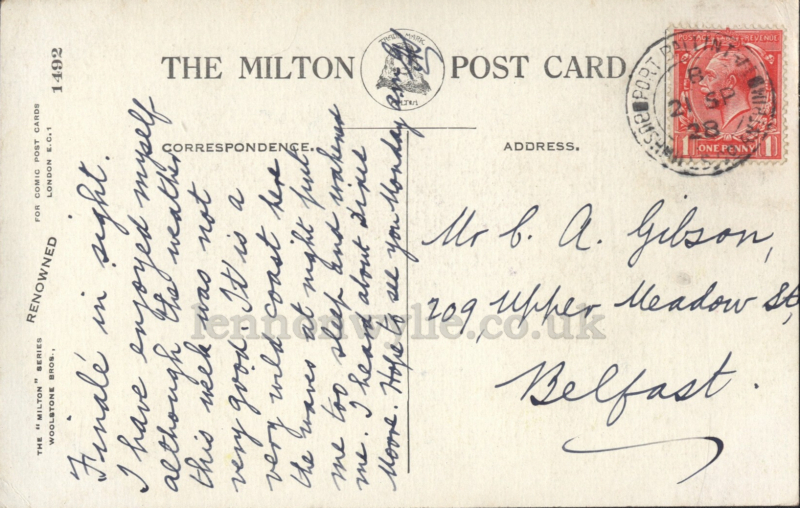 THE MILTON POST CARD
TRADE MARK
MILTON
CORRESPONDENCE.
ADDRESS.
1492
FOR COMIC POST CARDS
LONDON E.C.1
RENOWNED
THE "MILTON" SERIES
WOOLSTONE BROS.,
Finalé in sight.
I have enjoyed myself
although the weather
this week was not
very good. It is a
very wild coast here
the waves at night put
me too sleep and wakens
me. I heard about Dixie
Moore. Hope to see you Monday a.m.
Mr C. A. Gibson,
209, Upper Meadow St,
Belfast.
POSTAGE REVENUE
ONE PENNY
1 1
PORT BALLINTRAE
BUSHMILLS
21 SP
28
lennonwylie.co.uk